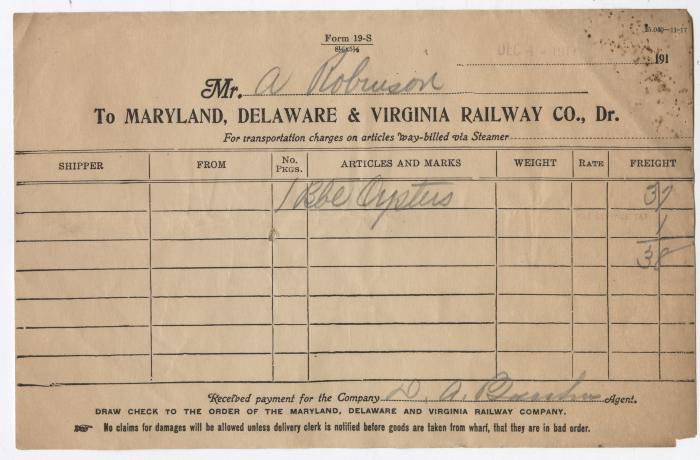 Form 19-S
8½x5½
DEC 4 - 191
191
Mr. A Robinson
To MARYLAND, DELAWARE & VIRGINIA RAILWAY CO., Dr.
For transportation charges on articles Way-billed via Steamer
SHIPPER FROM No. Pkgs. ARTICLES AND MARKS WEIGHT RATE FREIGHT
1 Bbl Oysters 37
1
38
Received payment for the Company D. A. Agent.
DRAW CHECK TO THE ORDER OF THE MARYLAND, DELAWARE AND VIRGINIA RAILWAY COMPANY.
No claims for damages will be allowed unless delivery clerk is notified before goods are taken from wharf, that they are in bad order.